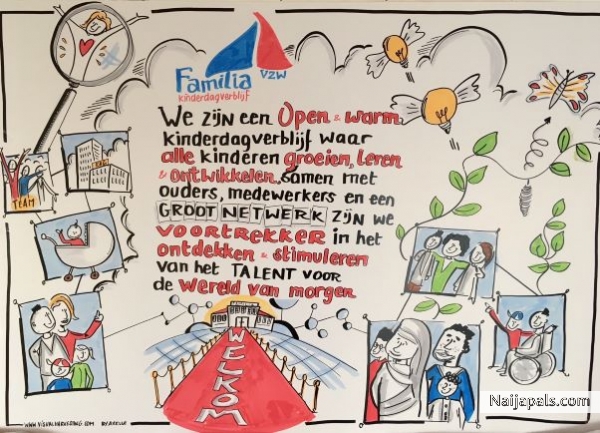 Familia vzw
kinderdagverblijf
We zijn een Open & warm
kinderdagverblijf waar
alle kinderen groeien, leren
& ontwikkelen, samen met
ouders, medewerkers en een
GROOT NETWERK zijn we
voortrekker in het
ontdekken & stimuleren
van het TALENT voor
de wereld van morgen
TEAM
WELKOM
Naijapals.com